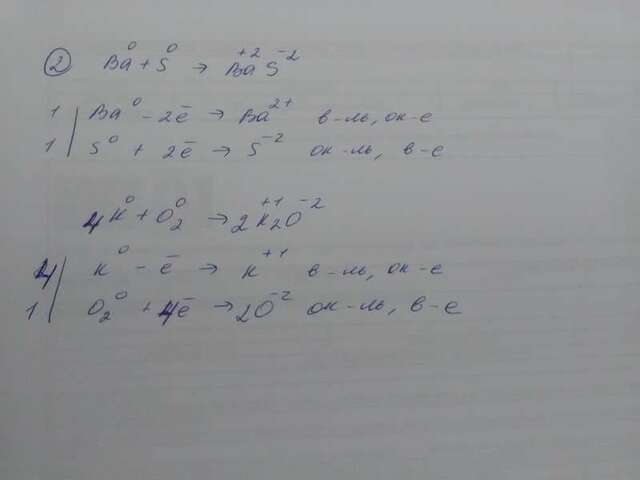 ② Ba⁰ + S⁰ → Ba⁺² S⁻²
1 | Ba⁰ - 2ē → Ba²⁺ в-ль, ок-е
1 | S⁰ + 2ē → S⁻² ок-ль, в-е
4K⁰ + O₂⁰ → 2K₂⁺¹O⁻²
4 | K⁰ - ē → K⁺¹ в-ль, ок-е
1 | O₂⁰ + 4ē → 2O⁻² ок-ль, в-е